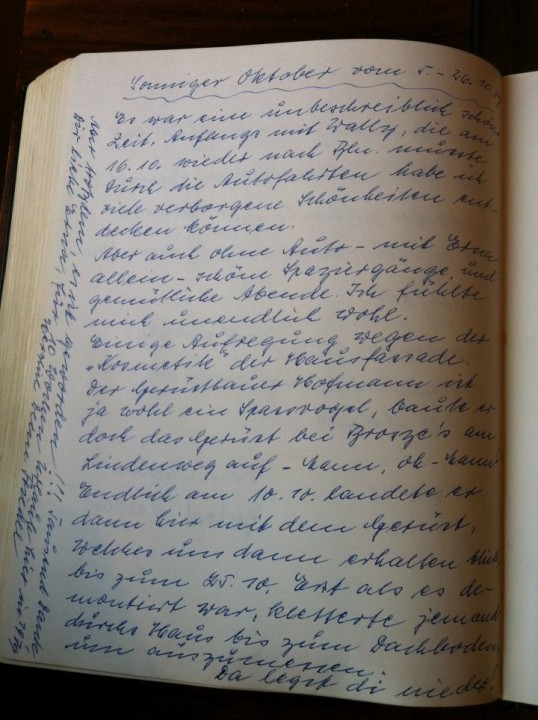 Sonniger Oktober vom 5. - 26.10.
Es war eine unbeschreiblich schöne
Zeit. Anfangs mit Wally, die am
16.10. wieder nach Bln. musste
Durch die Autofahrten habe ich
viele verborgene Schönheiten ent-
decken können.
Aber auch ohne Auto - mit Erna
allein - schöne Spaziergänge und
gemütliche Abende. Ich fühlte
mich unendlich wohl.
Einige Aufregung wegen der
„Kosmetik" der Hausfassade.
Der Gerüstbauer Hofmann ist
ja wohl ein Spassvogel, baute er
doch das Gerüst bei Brosze's am
Lindenweg auf - Mann, oh - Mann!
Endlich am 10.10. landete er
dann hier mit dem Gerüst,
welches uns dann erhalten blieb,
bis zum 25.10. Erst als es de-
montiert war, kletterte jemand
durchs Haus bis zum Dachboden,
um auszumessen.
Da legst di nieder!
Aber trotzdem, geworden !!! Tausend Dank
Dir liebe Erna, für Wochen Urlaub hier